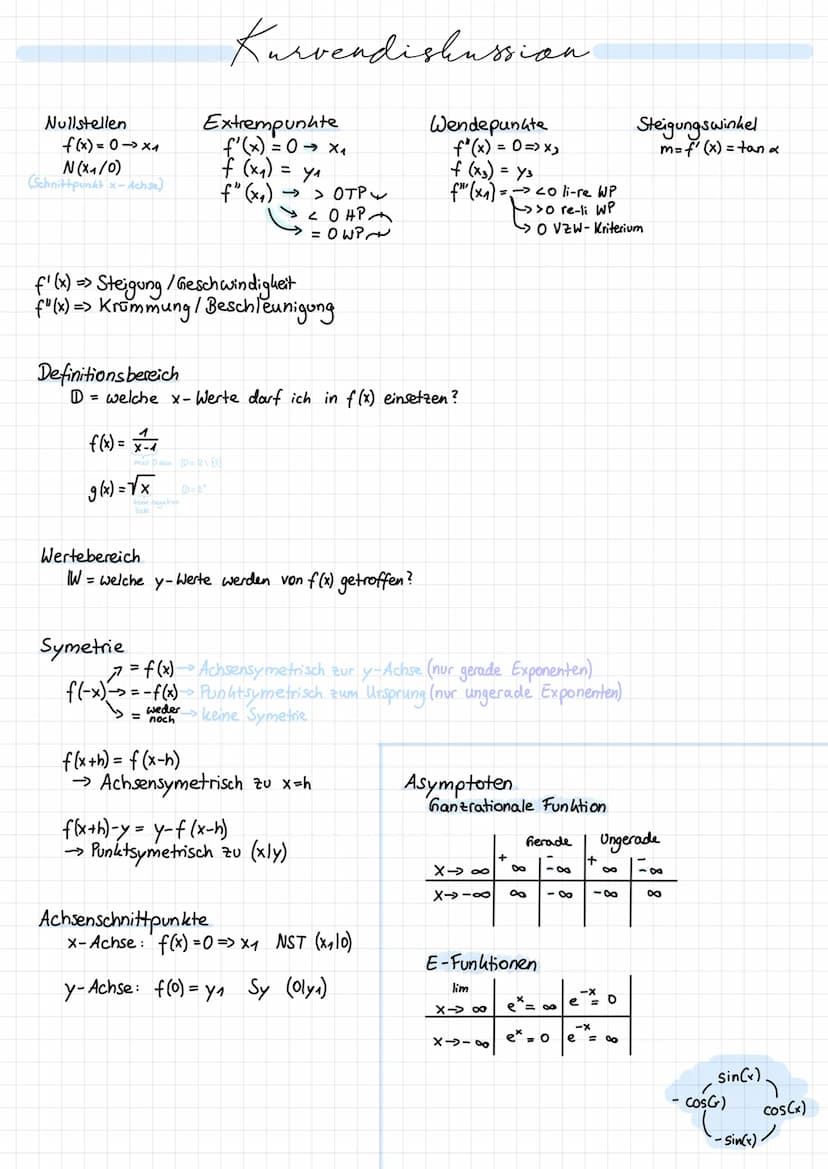 Kurvendiskussion
Nullstellen
f(x) = 0 → x₁
N(x₁/0)
(Schnittpunkt x-Achse)
Extrempunkte
f'(x) = 0 → x₁
f (x₁) = y₁
f"(x₁) → > 0 TP
↘ < 0 HP
→ = 0 WP
Wendepunkte
f"(x) = 0 => x₃
f (x₃) = y₃
f'''(x₁) = → <0 li-re WP
→ >0 re-li WP
→ 0 VZW-Kriterium
Steigungswinkel
m = f'(x) = tan α
f'(x) => Steigung / Geschwindigkeit
f"(x) => Krümmung / Beschleunigung
Definitionsbereich
𝔻 = welche x-Werte darf ich in f(x) einsetzen?
f(x) = 1/(x-1)
g(x) = √x
Wertebereich
𝕎 = welche y-Werte werden von f(x) getroffen?
Symetrie
↗ = f(x) → Achsensymetrisch zur y-Achse (nur gerade Exponenten)
f(-x) → = -f(x) → Punktsymetrisch zum Ursprung (nur ungerade Exponenten)
↘ = weder noch → keine Symetrie
f(x+h) = f(x-h)
→ Achsensymetrisch zu x=h
f(x+h)-y = y-f(x-h)
→ Punktsymetrisch zu (x/y)
Achsenschnittpunkte
x-Achse: f(x) = 0 => x₁ NST (x₁|0)
y-Achse: f(0) = y₁ Sy (0|y₁)
Asymptoten
Ganzrationale Funktion
Gerade Ungerade
+ - + -
x → ∞ ∞ -∞ ∞ -∞
x → -∞ ∞ -∞ -∞ ∞
E-Funktionen
lim
x → ∞ eˣ = ∞ e⁻ˣ = 0
x → -∞ eˣ = 0 e⁻ˣ = ∞
sin(x)
- cos(x) cos(x)
- sin(x)